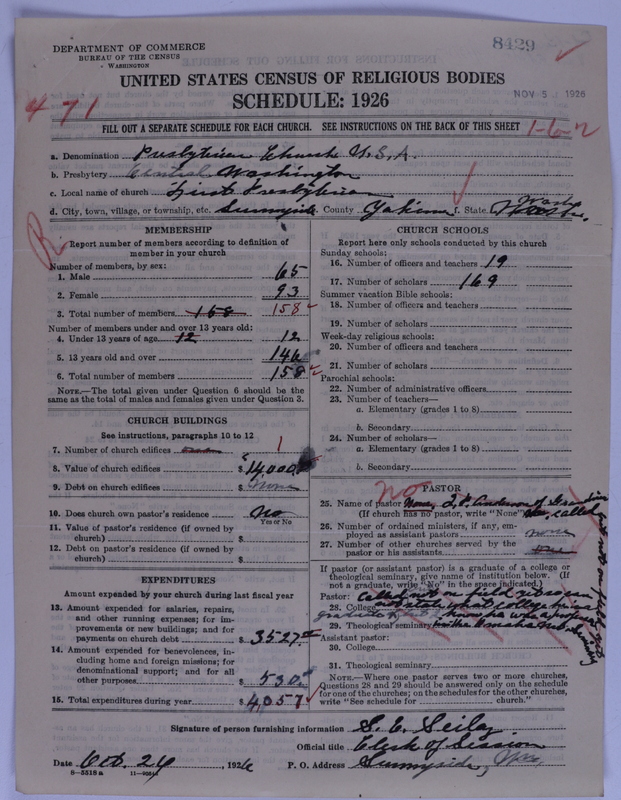 DEPARTMENT OF COMMERCE
BUREAU OF THE CENSUS
WASHINGTON
8429
UNITED STATES CENSUS OF RELIGIOUS BODIES
SCHEDULE: 1926
NOV 5 1926
471
FILL OUT A SEPARATE SCHEDULE FOR EACH CHURCH. SEE INSTRUCTIONS ON THE BACK OF THIS SHEET
1-6-2
a. Denomination Presbyterian Church U.S.A.
b. Presbytery Central Washington
c. Local name of church First Presbyterian
d. City, town, village, or township, etc. Sunnyside County Yakima f. State Wash.
R
MEMBERSHIP
Report number of members according to definition of member in your church
Number of members, by sex:
1. Male 65
2. Female 93
3. Total number of members 158 158
Number of members under and over 13 years old:
4. Under 13 years of age 12 12
5. 13 years old and over 146
6. Total number of members 158
NOTE.—The total given under Question 6 should be the same as the total of males and females given under Question 3.
CHURCH BUILDINGS
See instructions, paragraphs 10 to 12
7. Number of church edifices 1
8. Value of church edifices $14,000
9. Debt on church edifices $ None
10. Does church own pastor's residence? No
Yes or No
11. Value of pastor's residence (if owned by church) $
12. Debt on pastor's residence (if owned by church) $
EXPENDITURES
Amount expended by church during last fiscal year
13. Amount expended for salaries, repairs, and other running expenses; for improvements or new buildings; and for payments on church debt $3527.00
14. Amount expended for benevolences, including home and foreign missions; for denominational support; and for all other purposes $530
15. Total expenditures during year $4,057
CHURCH SCHOOLS
Report here only schools conducted by this church
Sunday schools:
16. Number of officers and teachers 19
17. Number of scholars 169
Summer vacation Bible schools:
18. Number of officers and teachers
19. Number of scholars
Week-day religious schools:
20. Number of officers and teachers
21. Number of scholars
Parochial schools:
22. Number of administrative officers
23. Number of teachers—
a. Elementary (grades 1 to 8)
b. Secondary
24. Number of scholars—
a. Elementary (grades 1 to 8)
b. Secondary
PASTOR
No
25. Name of pastor None, Anderson of called but not on field yet
(If church has no pastor, write "None")
26. Number of ordained ministers, if any, employed as assistant pastors none
27. Number of other churches served by the pastor or his assistants
If pastor (or assistant pastor) is a graduate of a college or theological seminary, give name of institution below. (If not a graduate, write "No" in the space indicated.)
Pastor: Called not on field
28. College not state what college he is a graduate of
29. Theological seminary Omaha
Assistant pastor:
30. College
31. Theological seminary
NOTE.—Where one pastor serves two or more churches, Questions 28 and 29 should be answered only on the schedule for one of the churches; on the schedules for the other churches, write "See schedule for church."
Signature of person furnishing information S. E. Seiloy
Official title Clerk of Session
Date Oct. 26, 1926 P. O. Address Sunnyside, Wash.
8-5518a